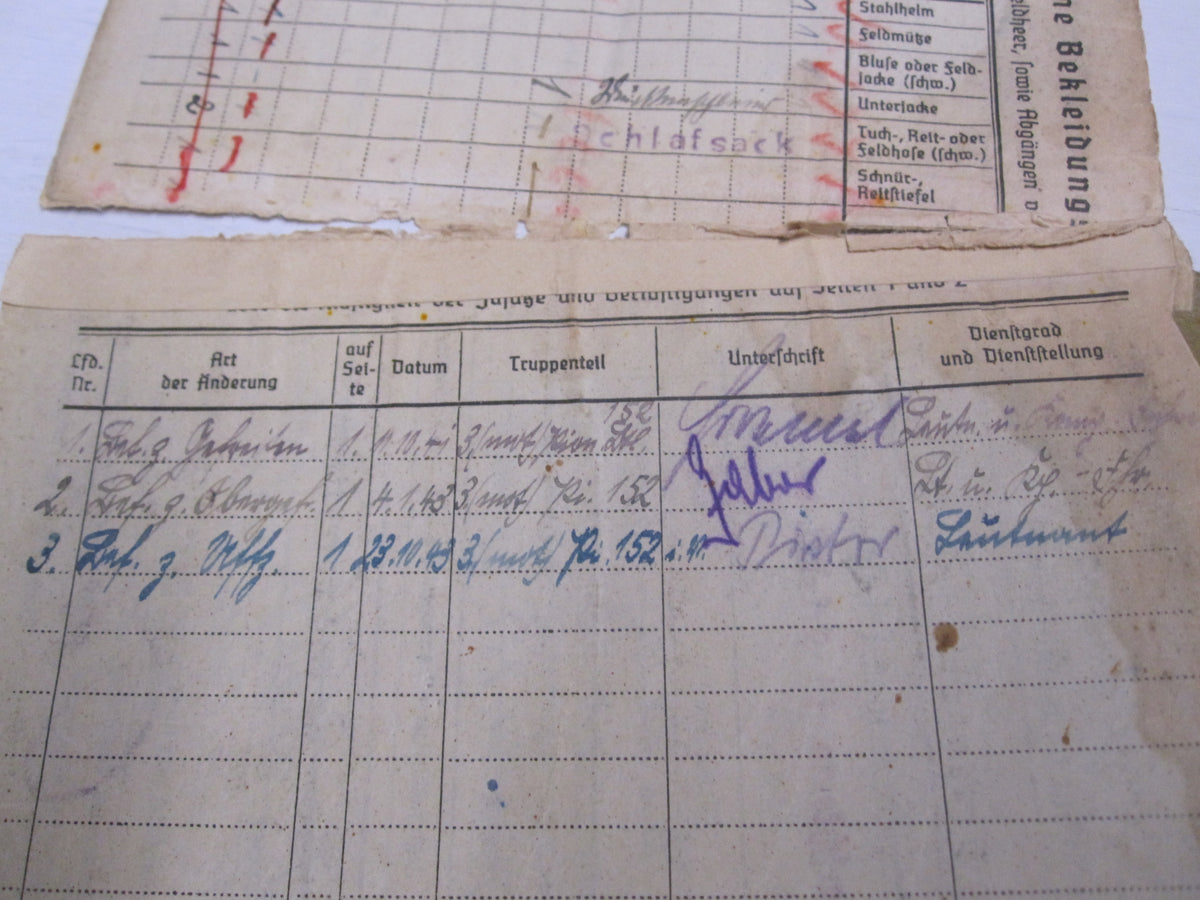 Stahlhelm
Feldmütze
Bluse oder Feld-
jacke (schw.)
Unterjacke
Tuch-, Reit- oder
Feldhose (schw.)
Schnür-,
Reitstiefel
Schlafsack
ne Bekleidung
eldheer, sowie Abgängen
der Zusätze und Berichtigungen auf Seiten 1 und 2
Lfd. Nr. Art der Änderung auf Seite Datum Truppenteil Unterschrift Dienstgrad und Dienststellung
1. Bef. z. Gefreiten 1. 152 Leutn. u.
2. Bef. z. Obergef. 1 4.1.43 3.(mot) Pi. 152 Lt. u. Kp.-Fhr.
3. Bef. z. Uffz. 1 23.10.43 3(mot) Pi. 152 Leutnant